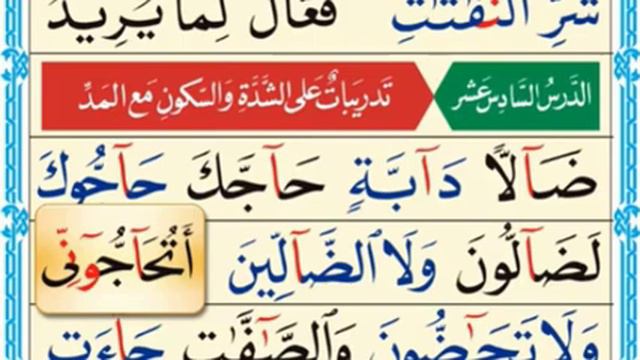 شَرِّ النَّفّٰثٰتِ فَعَّالٌ لِّمَا يُرِيدُ
الدَّرْسُ السَّادِسَ عَشَر تَدْرِيبَاتٌ عَلَى الشَّدَّةِ وَالسُّكُونِ مَعَ الْمَدِّ
ضَآلًّا دَآبَّةٍ حَآجَّكَ حَآجُّوكَ
لَضَآلُّونَ وَلَا ٱلضَّآلِّينَ أَتُحَآجُّوٓنِّى
وَلَا تَحَٰٓضُّونَ وَٱلصَّٰٓفَّٰتِ جَآءَتِ